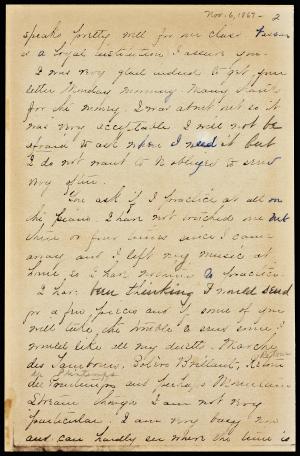 Nov. 6, 1867 - 2
speaks pretty well for our class. Vassar
is a loyal institution I assure you.
I was very glad indeed to get your
letter Monday morning. Many thanks
for the money. I was about out so it
was very acceptable. I will not be
afraid to ask when I need it but
I do not want to be obliged to send
very often.
You ask if I practice at all on
the piano. I have not touched one but
three or four times since I came
away and I left my music at
home so I have nothing to practice.
I have been thinking I would send
for a few pieces and if some of you
will take the trouble to send some I
would like all my duetts, Marche
des Tambours, Bolero Brillant,
du Printemps and perhaps Mountain
Stream though I am not very
particular. I am very busy now
and can hardly see where the time is